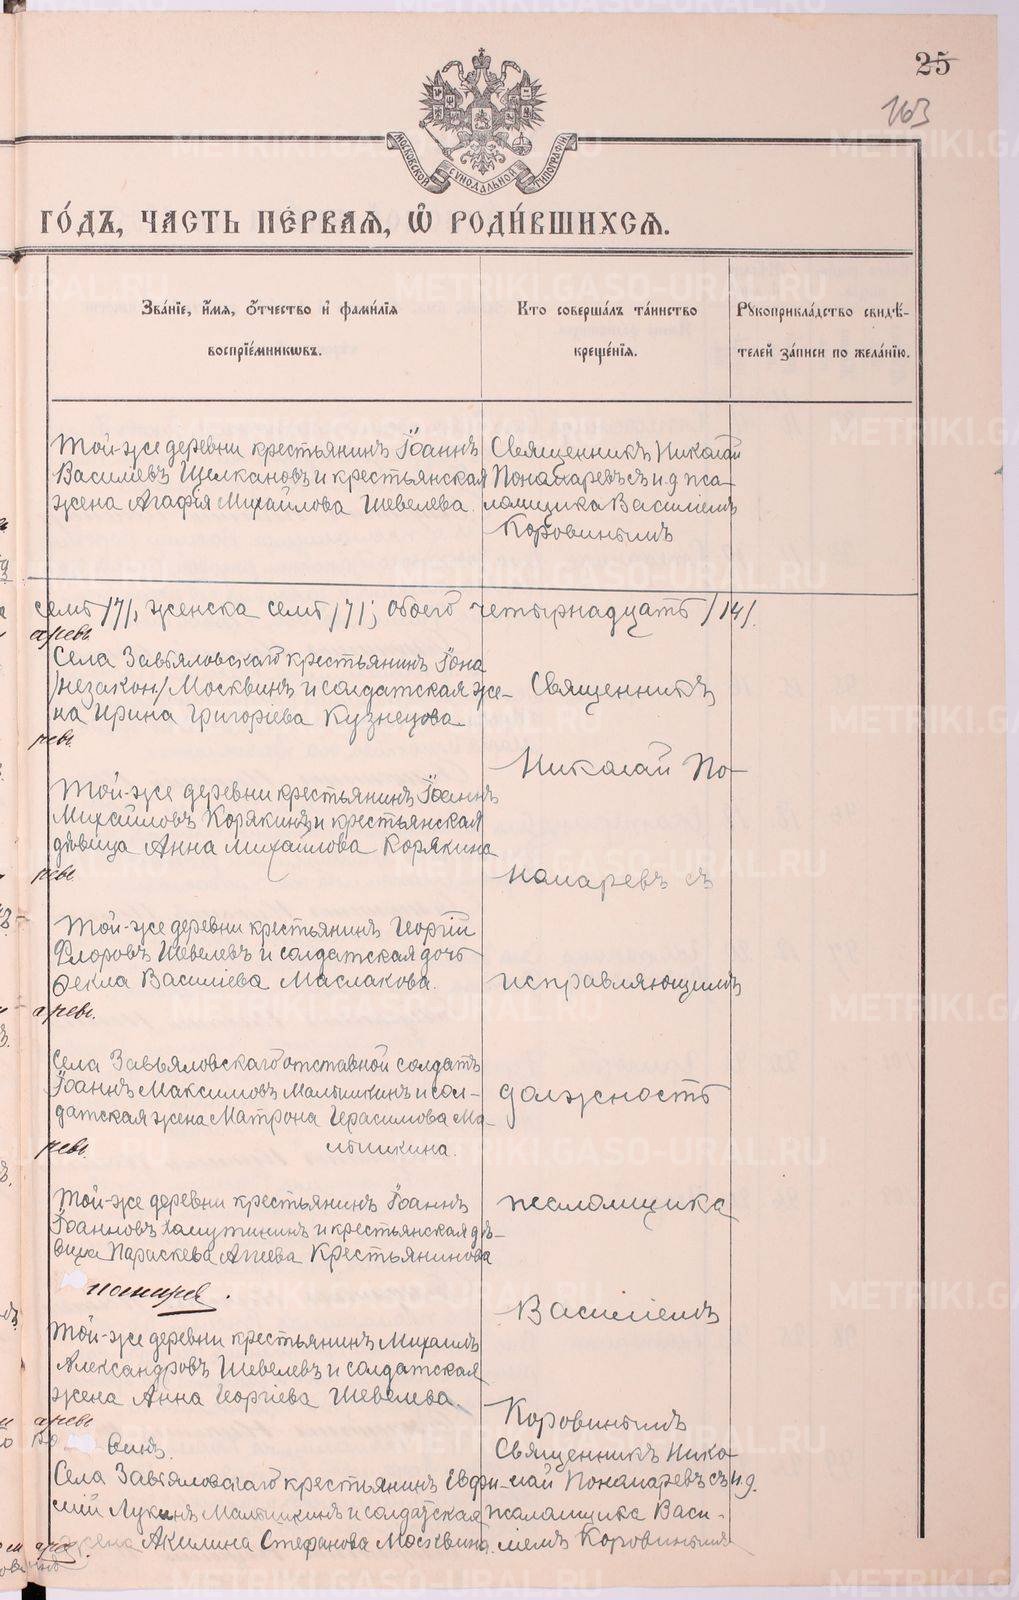 25
163
МОСКОВСКОЙ СѴНОДАЛЬНОЙ ТИПОГРАФІИ
ГО́ДЪ, ЧАСТЬ ПЕ́РВАЯ, Ѡ҆ РОДИ́ВШИХСЯ.
Зва́нїе, и҆́мѧ, ѻ҆́тчество и҆ фами́лїѧ
воспрїе́мникѡвъ.
Кто соверша́лъ та́инство
креще́нїѧ.
Рукоприкла́дство свидѣ́-
телей за́писи по жела́нїю.
Той-же деревни крестьянинъ Іоаннъ
Василіевъ Щелкановъ и крестьянская
жена Агафія Михайлова Шевелева.
Священникъ Николай
Понамаревъ съ и. д. пса-
ломщика Василіемъ
Коровинымъ
семь /7/, женска семь /7/; обоего четырнадцать /14/.
Села Завьяловскаго крестьянинъ Іона
/незакон/ Москвинъ и солдатская же-
на Ирина Григоріева Кузнецова
Той-же деревни крестьянинъ Іоаннъ
Михайловъ Корякинъ и крестьянская
дѣвица Анна Михайлова Корякина
Той-же деревни крестьянинъ Георгій
Флоровъ Шевелевъ и солдатская дочь
Ѳекла Василіева Маслакова.
Села Завьяловскаго отставной солдатъ
Іоаннъ Максимовъ Малышкинъ и сол-
датская жена Матрона Герасимова Ма-
лышкина.
Той-же деревни крестьянинъ Іоаннъ
Іоанновъ Хамутининъ и крестьянская дѣ-
вица Параскева Агеева Крестьянинова
Той-же деревни крестьянинъ Михаилъ
Александровъ Шевелевъ и солдатская
жена Анна Георгіева Шевелева.
Священникъ
Николай По-
намаревъ съ
исправляющимъ
должность
псаломщика
Василіемъ
Коровинымъ
Села Завьяловскаго крестьянинъ Евфи-
мій Лукинъ Малышкинъ и солдатская
жена Акилина Стефанова Москвина.
Священникъ Нико-
лай Понамаревъ съ и. д.
псаломщика Васи-
ліемъ Коровинымъ
METRIKI.GASO-URAL.RU